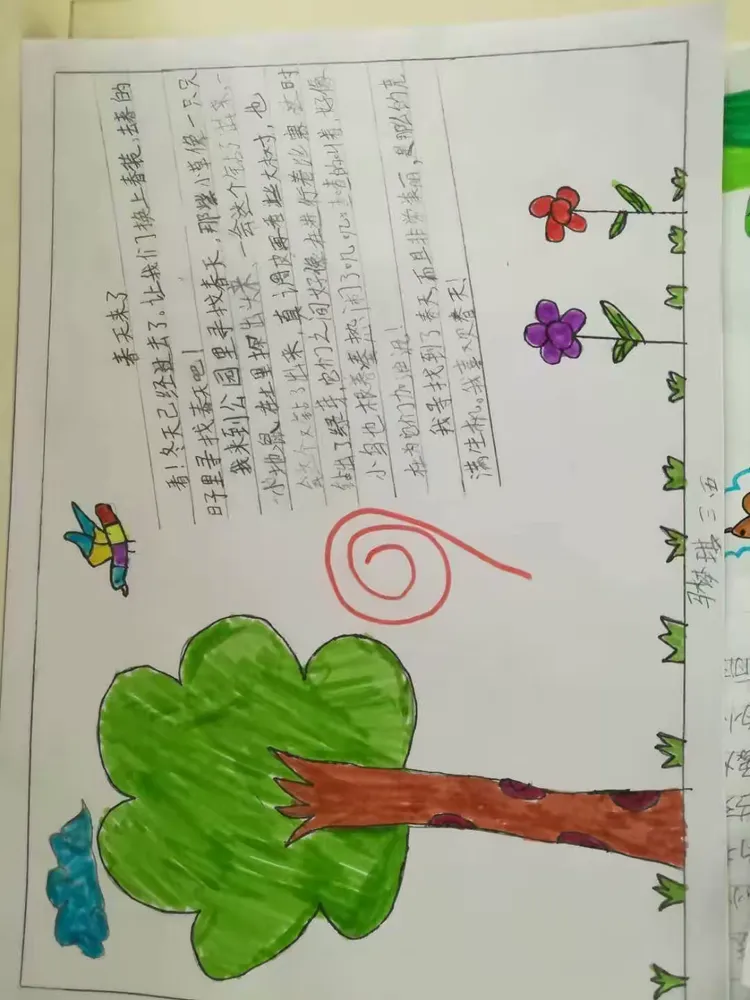 春天来了
看！冬天已经过去了。让我们换上春装，去春的
日子里寻找春天吧！
我来到公园里寻找春天，那些小草像一只只
小地鼠，在土里探出头来，一会这个钻了出来，一
会这个又钻了出来，真调皮再看些大树，也
钻出了绿芽它们之间好像在进行着比赛 这时
小鸟也报着喜热闹了叽叽喳喳的叫着，好像
在为它们加油进！
我寻找到了春天而且非常美丽，是那么的充
满生机。我喜欢春天！
梦琪 三 西